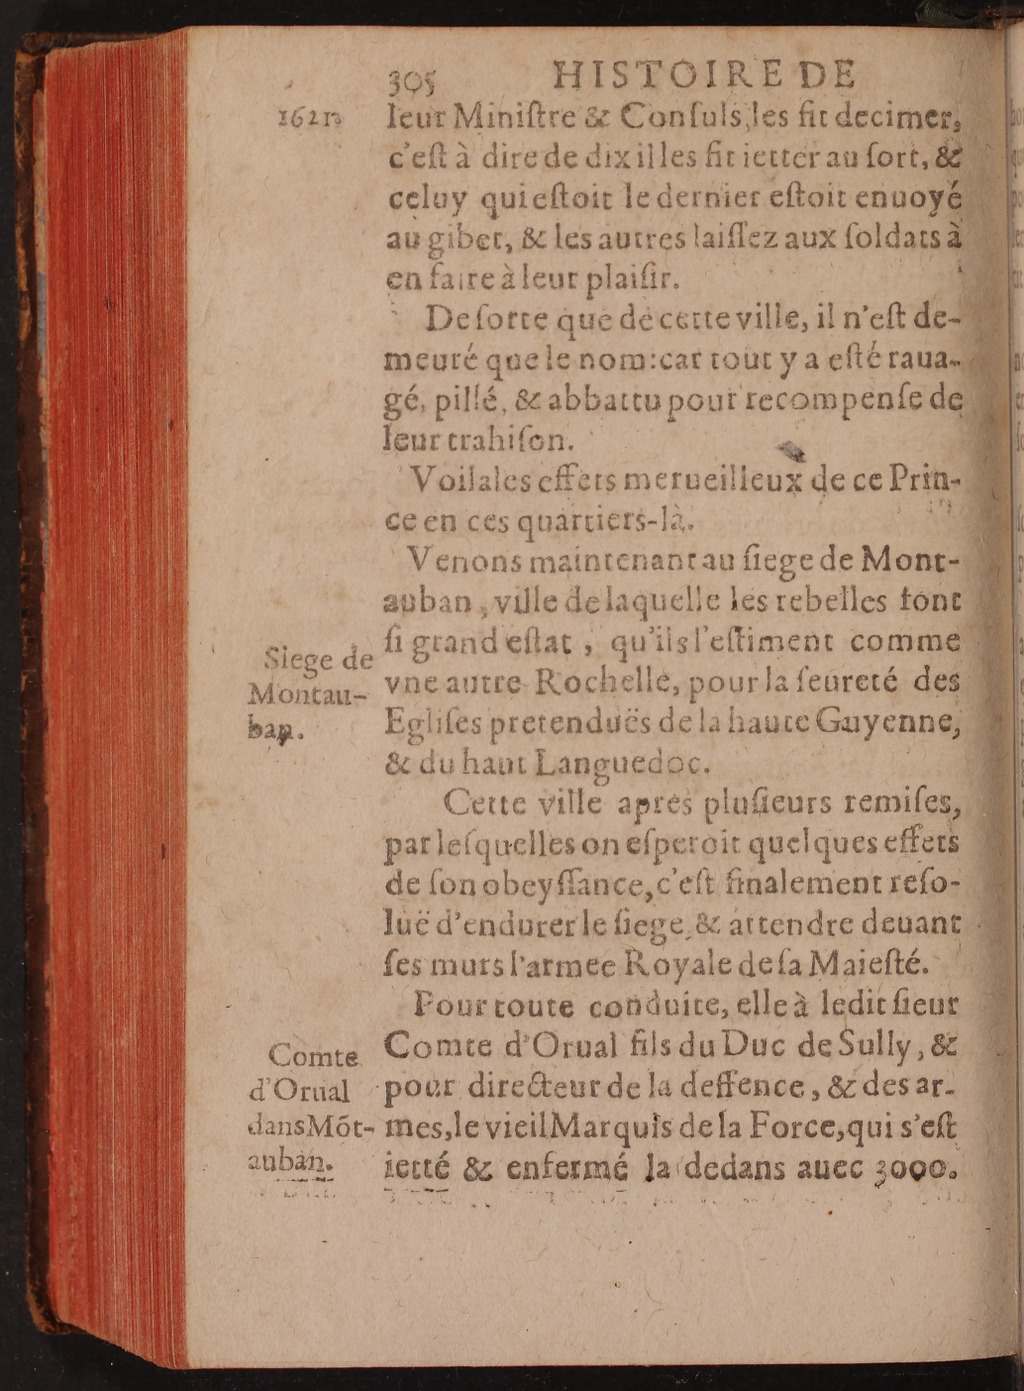 305 HISTOIRE DE
1621.
leur Miniſtre & Conſuls, les fit decimer,
c'eſt à dire de dix il les fit ietter au ſort, &
celuy qui eſtoit le dernier eſtoit enuoyé
au gibet, & les autres laiſſez aux ſoldats à
en faire à leur plaiſir.
De ſorte que de cette ville, il n'eſt de-
meuré que le nom: car tout y a eſté raua-
gé, pillé, & abbattu pour recompenſe de
leur trahiſon.
Voila les effets merueilleux de ce Prin-
ce en ces quartiers-là.
Venons maintenant au ſiege de Mont-
auban, ville de laquelle les rebelles font
ſi grand eſtat, qu'ils l'eſtiment comme
Siege de
Montau-
ban.
vne autre Rochelle, pour la ſeureté des
Egliſes pretenduës de la haute Guyenne,
& du haut Languedoc.
Cette ville apres pluſieurs remiſes,
par leſquelles on eſperoit quelques effets
de ſon obeyſſance, c'eſt finalement reſo-
luë d'endurer le ſiege, & attendre deuant
ſes murs l'armee Royale de ſa Maieſté.
Pour toute conduite, elle à ledit ſieur
Comte d'Orual fils du Duc de Sully, &
Comte
d'Orual
dans Mõt-
auban.
pour directeur de la deffence, & des ar-
mes, le vieil Marquis de la Force, qui s'eſt
ietté & enfermé la dedans auec 3000.